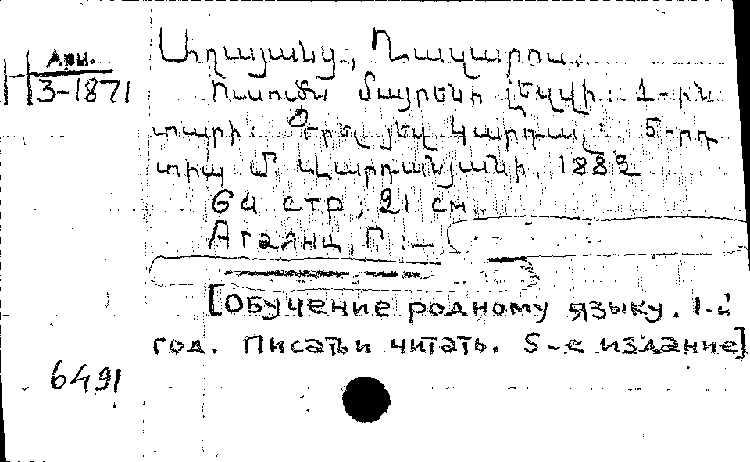 Арм.
3-1871
Աղայանց, Ղազարոս.
Ուսումն մայրենի լեզվի: 1-ին
տարի: Գրել յեվ կարդալ: 5-րդ
տիպ Մ. Վարդանյանի, 1882
64 стр, 21 см.
Агаянц, Г. —
[Обучение родному языку. 1-й
год. Писать и читать. 5-е издание]
6491